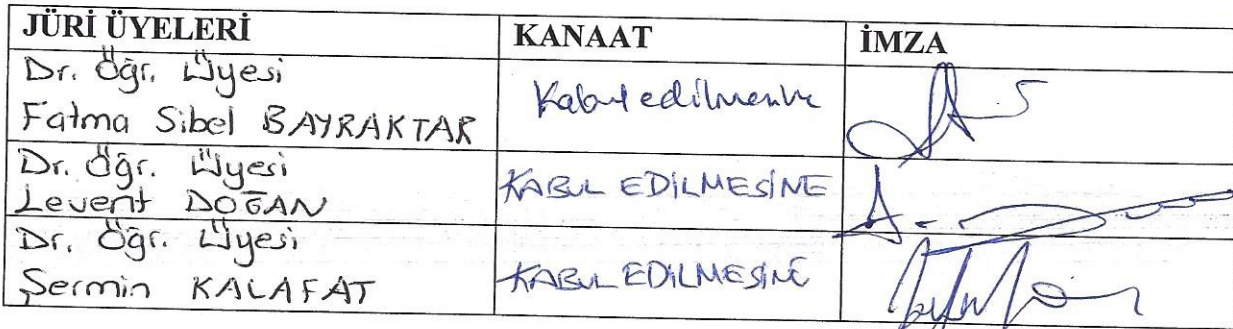 JÜRİ ÜYELERİ KANAAT İMZA
Dr. Öğr. Üyesi
Fatma Sibel BAYRAKTAR Kabul edilmesine
Dr. Öğr. Üyesi
Levent DOĞAN KABUL EDİLMESİNE
Dr. Öğr. Üyesi
Şermin KALAFAT KABUL EDİLMESİNE